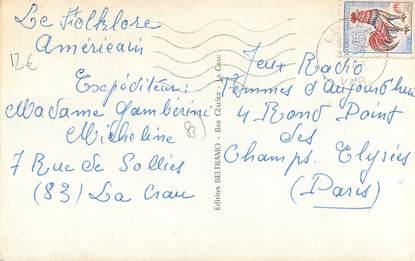 Le Folklore
Américain
12€
Expéditeur:
Madame Gamberini
Micheline
83
7 Rue de Solliès
(83) La Crau
Edition BELTRAMO - BAR GLACIER - LA CRAU
Jeux Radio
Femmes d'Aujourd'hui
4 Rond Point
des
Champs. Elysées
(Paris)
VAR